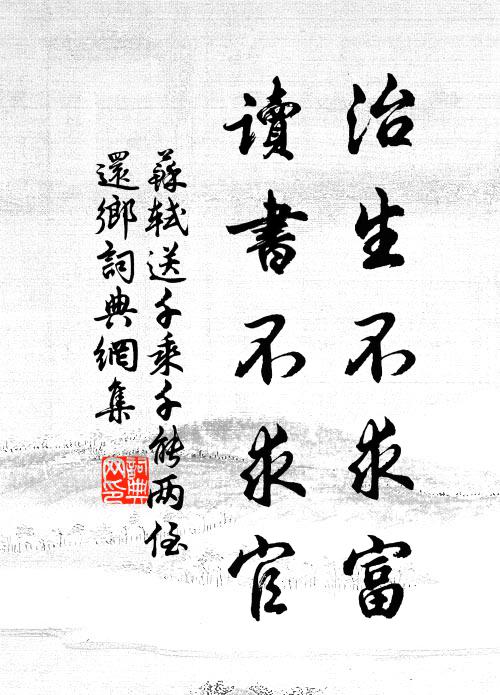 治生不求富
讀書不求官
蘇軾送千乘千能兩侄
還鄉詞典網集
詞典
网印